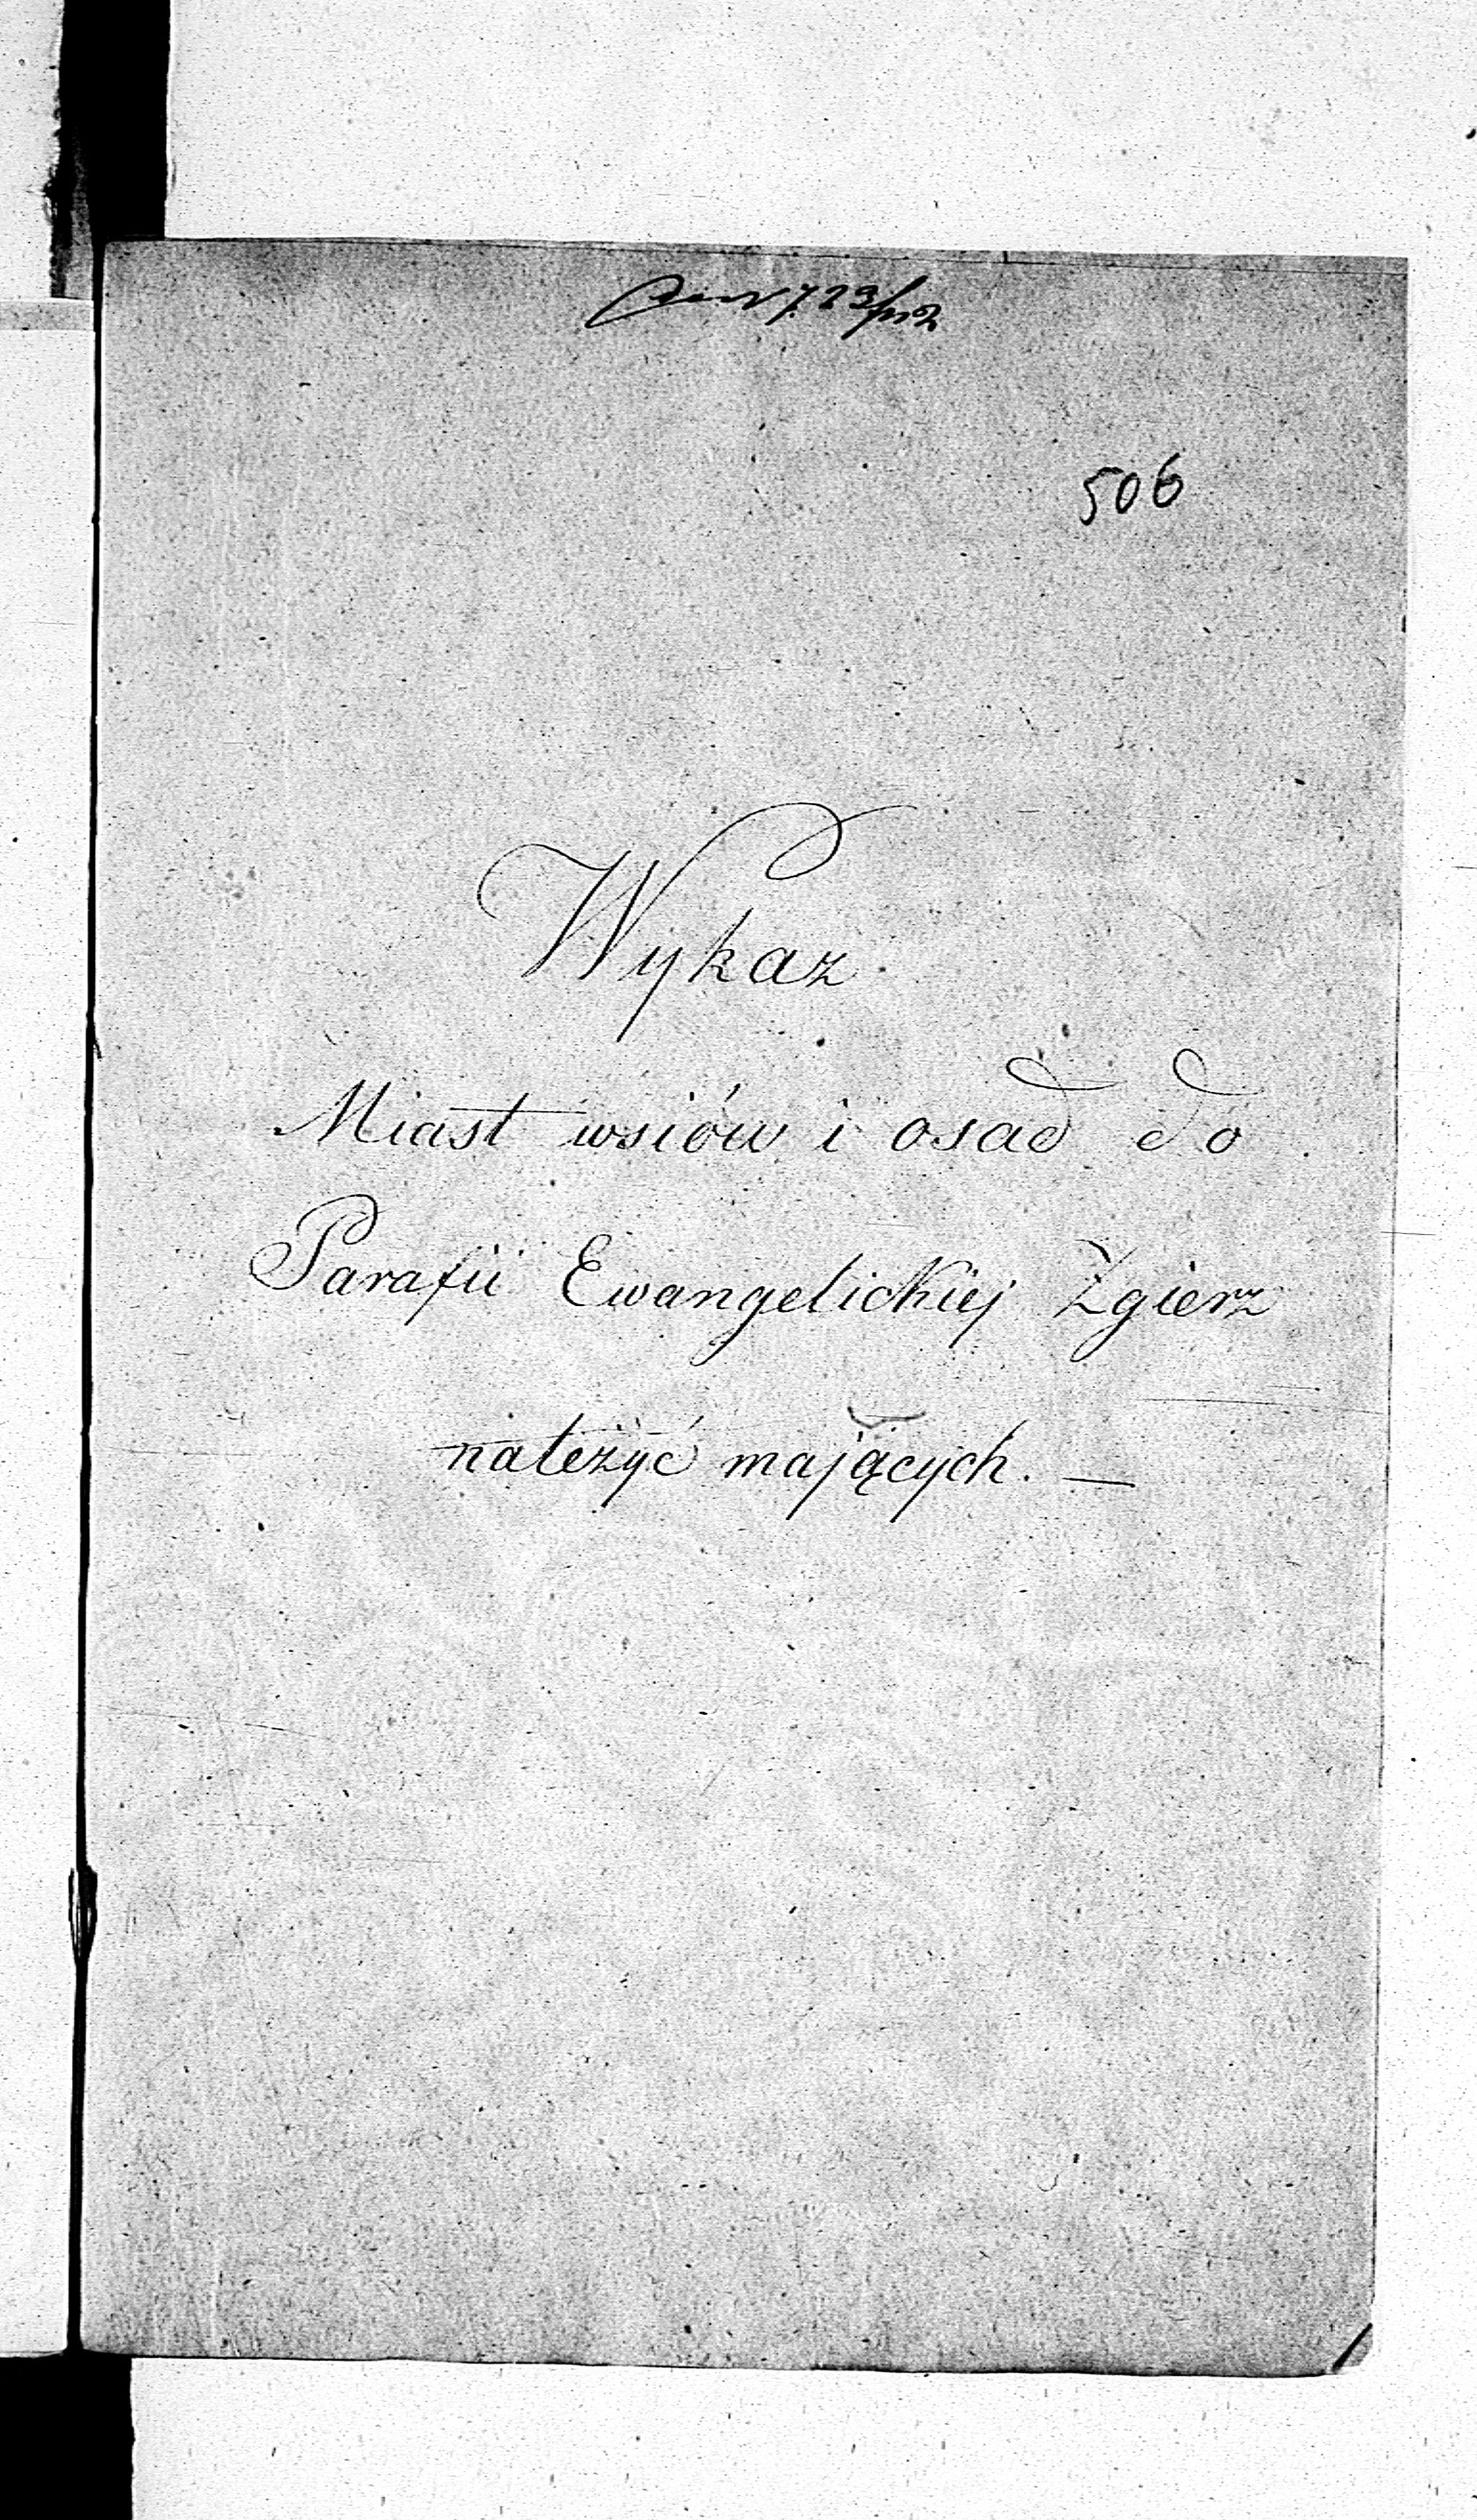 506
Wykaz
Miast wsiów i osad do
Parafii Ewangelickiej Zgierz
należyć mających. —